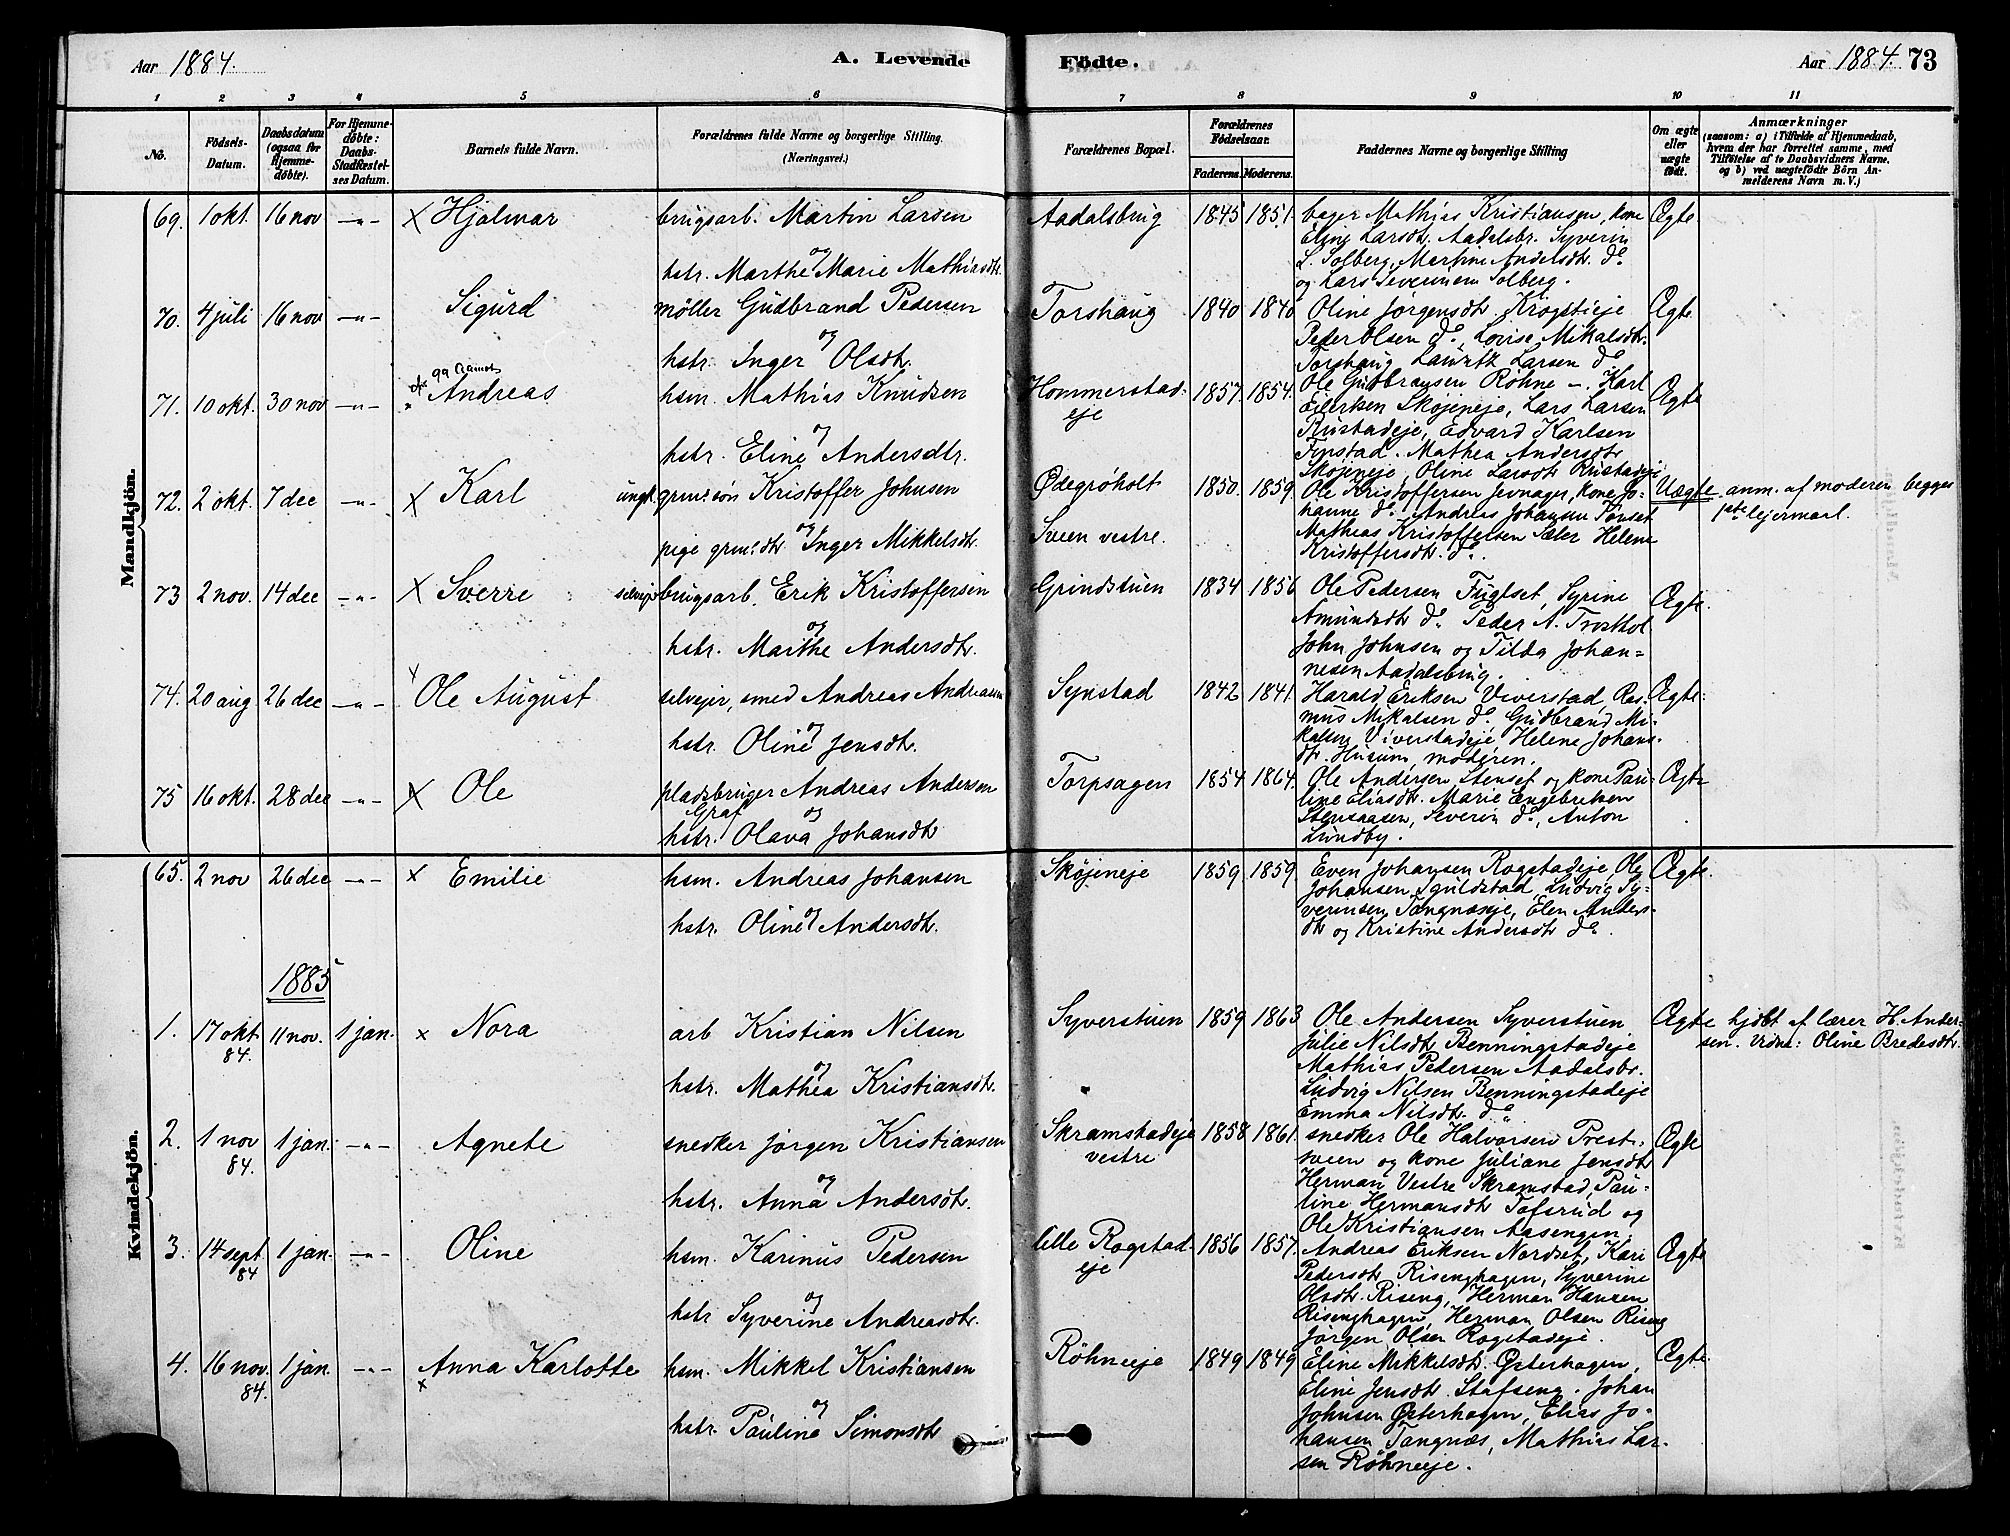 Aar 1884.
A. Levende
Födte.
Aar 1884. 73
1 2 3 4 5 6 7 8 9 10 11
No.
Födsels-
Datum.
Daabsdatum
(ogsaa for
Hjemme-
döbte).
For Hjemme-
döbte:
Daabs-
Stadfæstel-
ses Datum.
Barnets fulde Navn.
Forældrenes fulde Navne og borgerlige Stilling.
(Næringsvei.)
Forældrenes Bopæl.
Forældrenes
Födselsaar.
Faderens. Moderens.
Faddernes Navne og borgerlige Stilling
Om ægte
eller
uægte
født.
Anmærkninger
(saasom: a) i Tilfælde af Hjemmedaab,
hvem der har forrettet samme, med
Tilföielse af to Daabsvidners Navne,
og b) ved uægtefödte Börn An-
melderens Navn m. V.)
Mandkjön.
69. 1 okt. 16 nov -"- x Hjalmar
brugsarb. Martin Larsen
og
hstr. Marthe Marie Mathiasdtr.
Aadalsbrug 1845 1851.
bager Mathias Kristiansen, kone
Eline Larsdtr. Aadalsbr. Syverin
L. Solberg, Martine Andersdtr. do
og Lars Severinsen Solberg.
Ægte.
70. 4 juli 16 nov -"- Sigurd
möller Gudbrand Pedersen
og
hstr. Inger Olsdtr.
Torshaug 1840 1840
Oline Jørgensdtr. Krogstieje
Peder Olsen do, Lovise Mikalsdtr.
Torshaug Lauritz Larsen do
Ægte.
71. 10 okt. 30 nov -"- Andreas
hsm. Mathias Knudsen
og
hstr. Eline Andersdtr.
Hommerstad-
eje
1857. 1854.
Ole Gudbransen Röhne -. Karl
Eilerksen Skøjeneje, Lars Larsen
Rustadeje, Edvard Karlsen
Finstad. Mathea Andersdtr
Skøjeneje, Oline Larsdtr Rustadeje
Ægte
72. 2 okt. 7 dec -"- x Karl
ungk. grm.søn Kristoffer Johnsen
og
pige grm.dtr. Inger Mikkelsdtr.
Ødegrøholt
Sveen vestre.
1850. 1859.
Ole Kristoffersen Jevnager, kone Jo-
hanne do. Andreas Johannes Tønset
Mathias Kristoffersen Sæter Helene
Kristoffersdtr. do.
Uægte
anm. af moderen begges
1ste lejermaal.
73 2 nov. 14 dec -"- x Sverre
selvejer brugsarb. Erik Kristoffersen
og
hstr. Marthe Andersdtr.
Grindstuen 1834 1856
Ole Pedersen Fuglset, Syrine
Amundsdtr do. Peder A. Trosthol
John Johnsen og Tilda Johan-
nesen Aadalsbrug.
Ægte.
74. 20 aug 26 dec -"- Ole August
selvejer, smed Andreas Andreasen
og
hstr. Oline Jensdtr.
Synstad 1842 1841.
Harald Eriksen Viverstad, Ras-
mus Mikalsen do. Gudbrand Mi-
kalsen Viverstadeje, Helene Johans-
dtr. Husum, moderen.
Ægte.
75 16 okt. 28 dec -"- x Ole
pladsbruger Andreas Andersen
Graf og
hstr. Olava Johansdtr
Torpsagen 1854 1864.
Ole Andersen Stenset og kone Pau-
line Eliasdtr. Marie Engebretsen
Stensaasen, Severin do, Anton
Lundby.
Ægte
Kvindekjön.
65. 2 nov 26 dec -"- x Emilie
hsm. Andreas Johansen
og
hstr. Oline Andersdtr.
Skøjeneje 1859 1859.
Even Johansen Rogstadeje, Ole
Johansen Sguldstad, Ludvig Sy-
verinsen Tangnæseje, Elen Anders-
dtr og Kristine Andersdtr do.
Ægte.
1885
1. 17 okt. 84. 11 nov. 1 jan. x Nora
arb Kristian Nilsen
og
hstr. Mathea Kristiansdtr.
Syverstuen 1859 1863
Ole Andersen Syverstuen
Julie Nilsdtr Benningstadeje
Mathias Pedersen Aadalsbr.
Ludvig Nilsen Benningstadeje
Emma Nilsdtr. do
Ægte
hjdbt af lærer H. Ander-
sen. Vidne: Oline Bredesdtr.
2. 1 nov 84. 1 jan. -"- Agnete
snedker Jørgen Kristiansen
og
hstr. Anna Andersdtr.
Skramstadeje
vestre
1858 1861.
snedker Ole Halvorsen Prest-
sveen og kone Juliane Jensdtr
Herman Vestre Skramstad, Pau-
line Hermansdtr Tofsrud og
Ole Kristiansen Aasengen
Ægte
3. 14 sept. 84 1 jan. -"- Oline
hsm. Karinus Pedersen
og
hstr Syverine Andreasdtr.
lille Rogstad
eje
1856 1857.
Andreas Eriksen Nordset, Kari
Pedersdtr Risenghagen, Syverine
Olsdtr. Riseng, Herman Hansen
Risenghagen, Herman Olsen Riseng
Jørgen Olsen Rogstadeje.
Ægte
4. 16 nov. 84. 1 jan. -"- x Anna Karlotte
hsm. Mikkel Kristiansen
og
hstr. Pauline Simonsdtr
Röhneeje 1849 1849
Eline Mikkelsdtr. Østerhagen,
Eline Jensdtr. Stafseng. Johan
Johnsen Østerhagen, Elias Jo-
hansen Tangnæs, Mathias Lar-
sen Röhneeje.
Ægte.